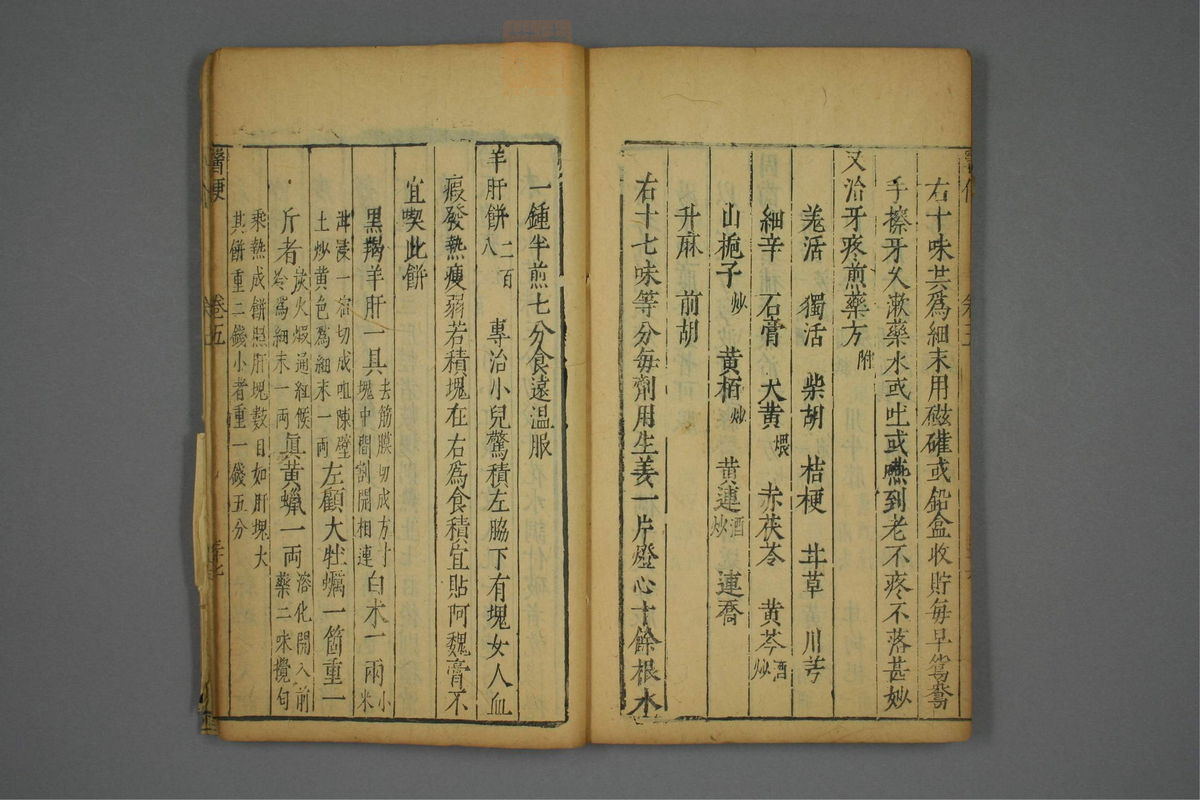 右十味共爲細末用磁礶或鉛盒收貯每早
手擦牙久漱藥水或吐或嚥到老不疼不落甚妙
又治牙疼煎藥方附
羗活 獨活 柴胡 桔梗 甘草 川芎
細辛 石膏 大黄煨 赤茯苓 黄芩酒炒
山梔子炒 黄栢炒 黄連酒炒 連喬
升麻 前胡
右十七味等分每劑用生姜一片燈心十餘根水
一鍾半煎七分食遠温服
羊肝餅二百八 專治小兒驚積左脇下有塊女人血
瘕發熱瘦弱若積塊在右爲食積宜貼阿魏膏不
宜喫此餅
黑羯羊肝一具去筋膜切成方寸塊中間割開相連 白术一兩小米
泔浸一宿切成咀陳壁土炒黄色爲細末一兩 左顧大牡蠣一箇重一
斤者炭火煅通紅候冷爲細末一两 真黄蠟一两溶化開入前藥二味攪匀
乘熱成餅照肝塊數目如肝塊大
其餅重二錢小者重一錢五分
醫便
卷五